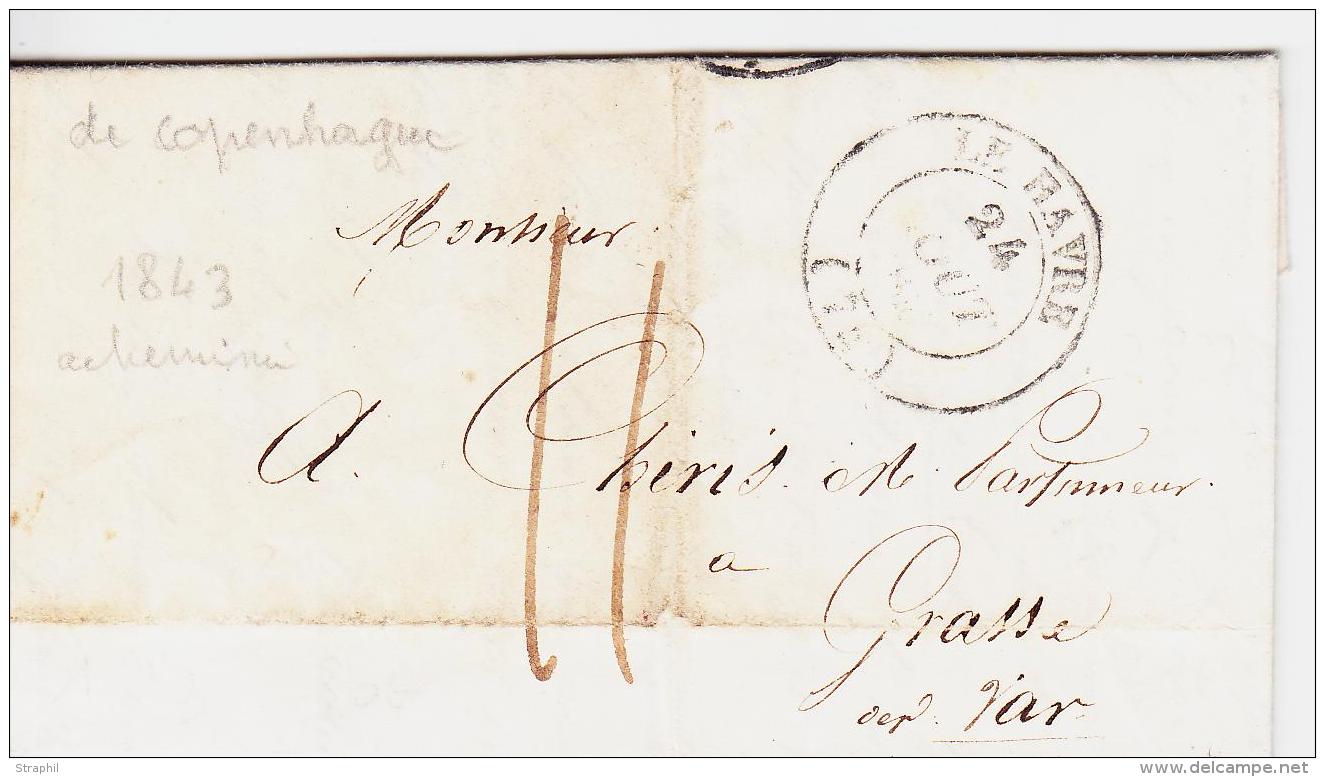 de Copenhague
LE HAVRE
24
AOUT
(74)
Monsieur
1843
achemine
11
A. Chiris. M. Parfumeur.
a
Grasse
dep. Var
Straphil
www.delcampe.net